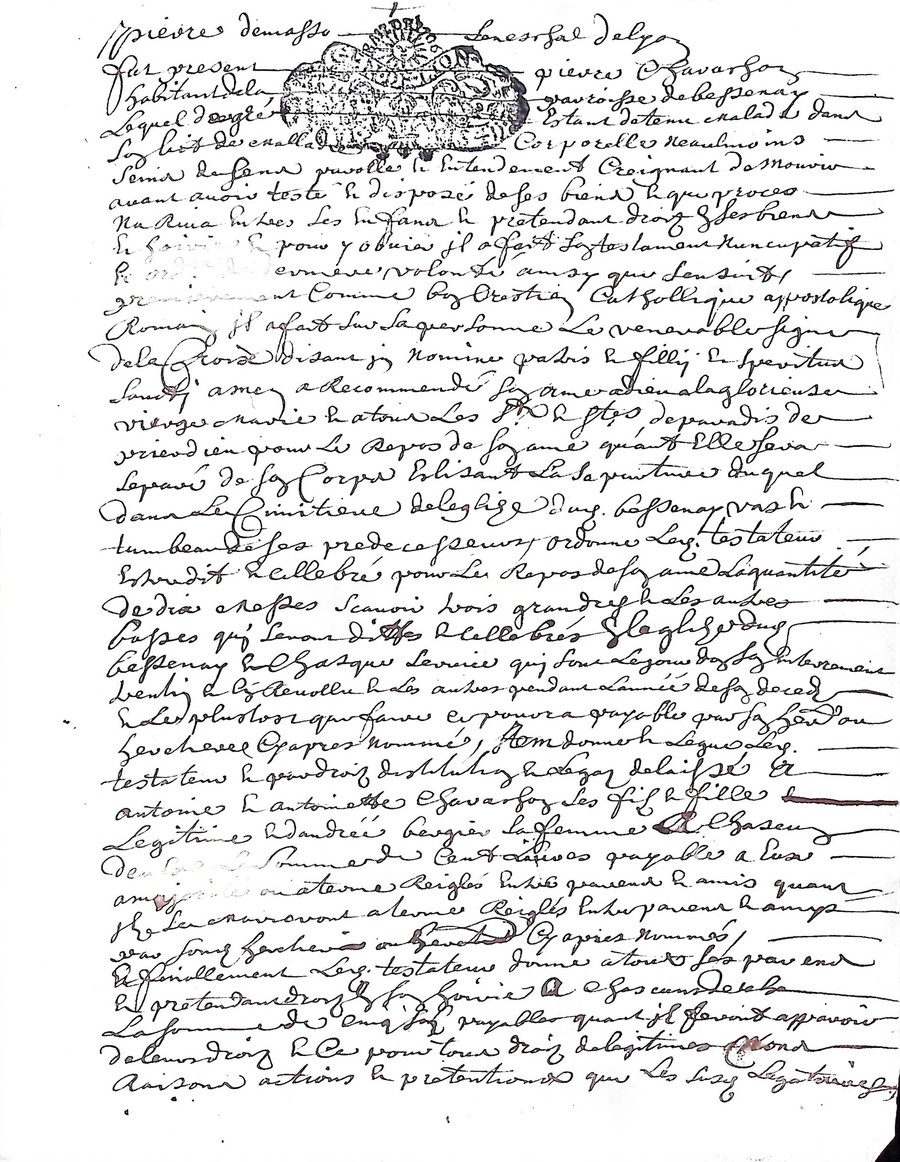 pierre demasso Seneschal de lyon
fut present pierre Chavasson
habitant de la parroisse de bessenay
Lequel de gré Estant detenu malade dans
son lict de mallad Corporelle Neaulmoins
ferme de sens parolle et Entendement Craignant de Mourir
avant avoir testé et disposé de ses biens et que proces
Na Riva Entres Les Enfans et pretendant droiz En ses biens
et hoirie et pour y obvier jl a fait son testament Nuncupatif
et derniere volonté ainsy que sensuit
premierement Comme bon Crestien Catholique appostolique
Romain jl a fait sur sa personne Le venerable signe
de la Croix disant jn Nomine patris et fillij et speritus
Sancti amen a Recommendé son ame a dieu a la glorieuse
vierge marie et a tous Les Sts et Stes de paradis de
prier dieu pour Le Repos de son ame quant Elle sera
separé de son Corps Eslisant La Sepulture duquel
dans Le Cimitiere de leglize dud. bessenay vas et
tumbeau de ses predecesseurs, ordonne Led. testateur
Estre dit et Cellebré pour Le Repos de son ame La quantité
de dix messes scavoir trois grandes et Les autres
basses quj seront dittes et Cellebrés En leglize dud.
bessenay a Chasque service quj sont Le jour de son Enterrement
et Les autres pendant Lannée de son deced
et Le plustost que faire ce pourra payable par son heritier ou
heretiere Cy apres Nommé, Item donne et Legue Led.
testateur et par droiz dinstitution et Legat delaissé a
antoine et antoinette Chavasson ses filz et fille
Legitime et dandrée bergier sa femme A Chascun
deux La Somme de Cent Livres payable a Eux
ou a terme Reiglés Entre parens et amis quant
jlz se mariront a terme Reiglés Entre parens et amys
par Cy apres Nommés,
Et finallement Led. testateur donne a tous ses parens
et pretendant droiz En son hoirie A Chascun deux
La somme de Cinq solz payables quant jl feront apparoir
de leurs droiz et Ce pour tous droiz de legitimes
Raisons actions et pretentions que Les susd. Legataires